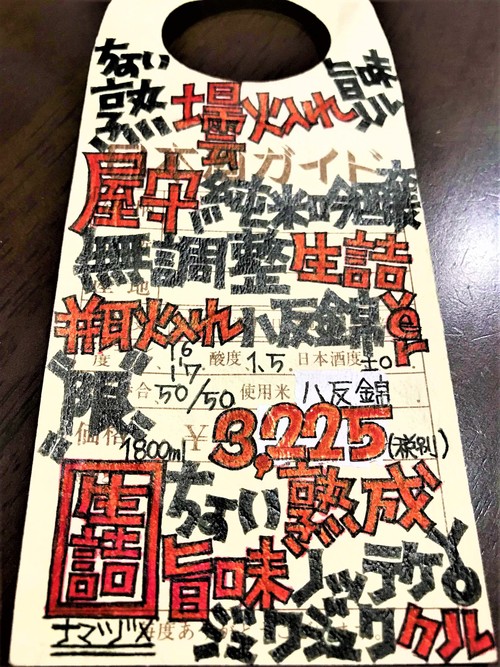 ちょい熟 壜火入れ 旨味ノル
日本酒ガイド
屋守 純米吟醸
無調整 生詰
瓶火入れ 八反錦 Ver
度 16 17 酸度 1.5 日本酒度 ±0
限 合 50/50 使用米 八反錦
価格 ¥3,225(税別)
1800ml
生詰 ちょい熟成
旨味ノッテケ
ナマヅメ ジュワジュワクル
毎度あ